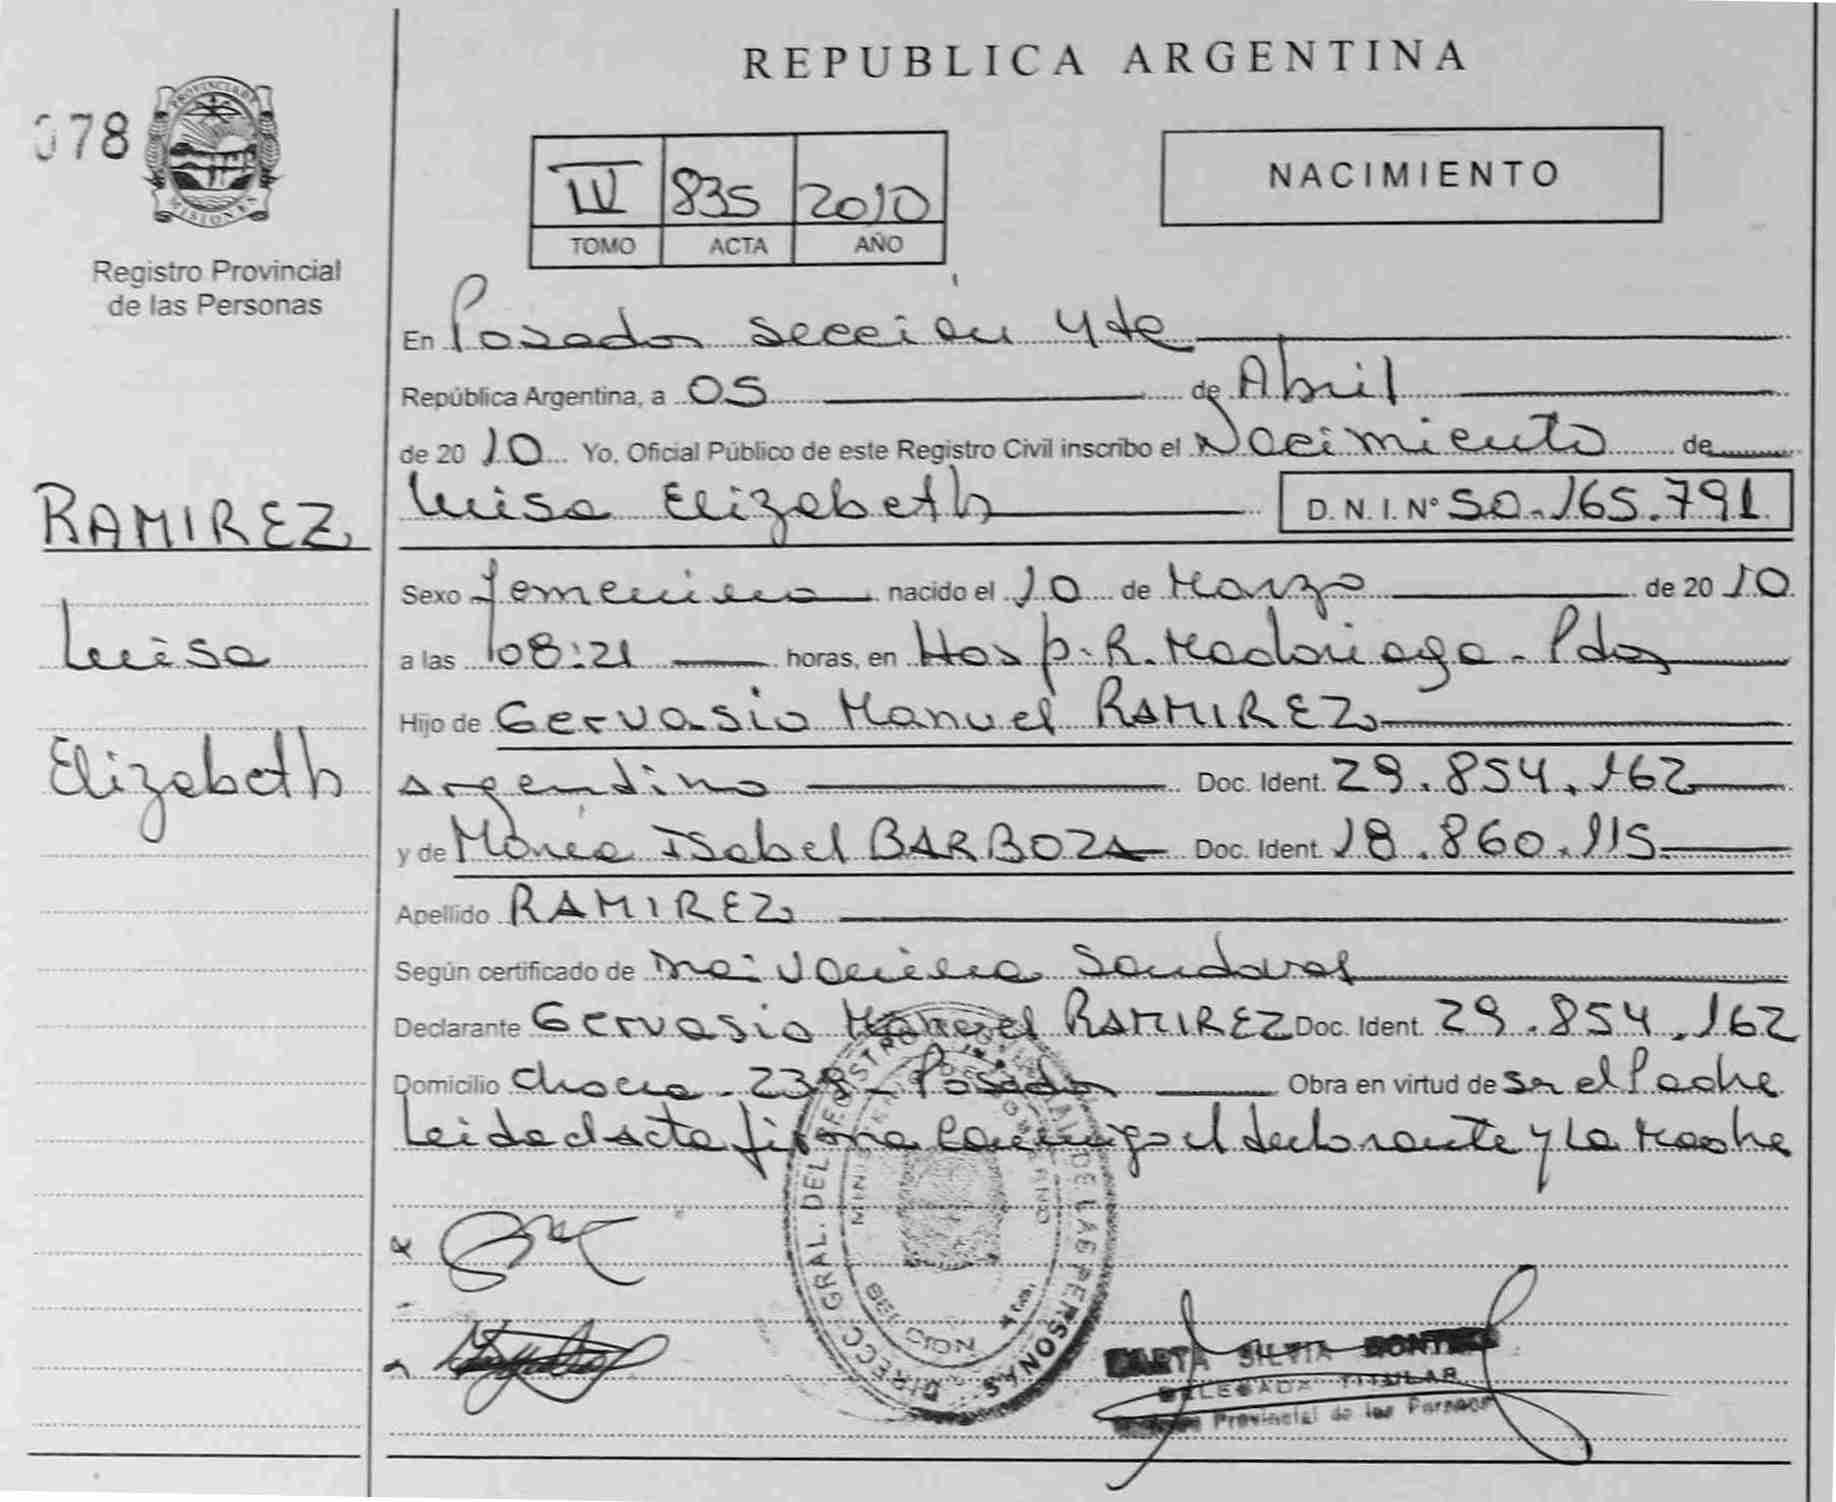 REPUBLICA ARGENTINA
078
PROVINCIA DE
MISIONES
Registro Provincial
de las Personas
III 835 2010
TOMO ACTA AÑO
NACIMIENTO
En Posadas sección 4ta
República Argentina, a 05 de Abril
de 2010 Yo, Oficial Público de este Registro Civil inscribo el Nacimiento de
Luisa Elizabeth D.N.I. Nº 50.165.791
RAMIREZ
Luisa
Elizabeth
Sexo Femenino nacido el 10 de Marzo de 2010
a las 08:21 horas, en Hosp. R. Madariaga - Pdas
Hijo de Gervasio Manuel RAMIREZ
Argentino Doc. Ident. 29.854.162
y de María Isabel BARBOZA Doc. Ident. 18.860.115
Apellido RAMIREZ
Según certificado de Sandoval
Declarante Gervasio Manuel RAMIREZ Doc. Ident. 29.854.162
Domicilio 238 - Posadas Obra en virtud de ser el Padre
Leida el acta firma conmigo el declarante y la Madre
DIRECC. GRAL. DEL REGISTRO PROVINCIAL DE LAS PERSONAS
SILVIA
DELEGADA TITULAR
Provincial de las Personas